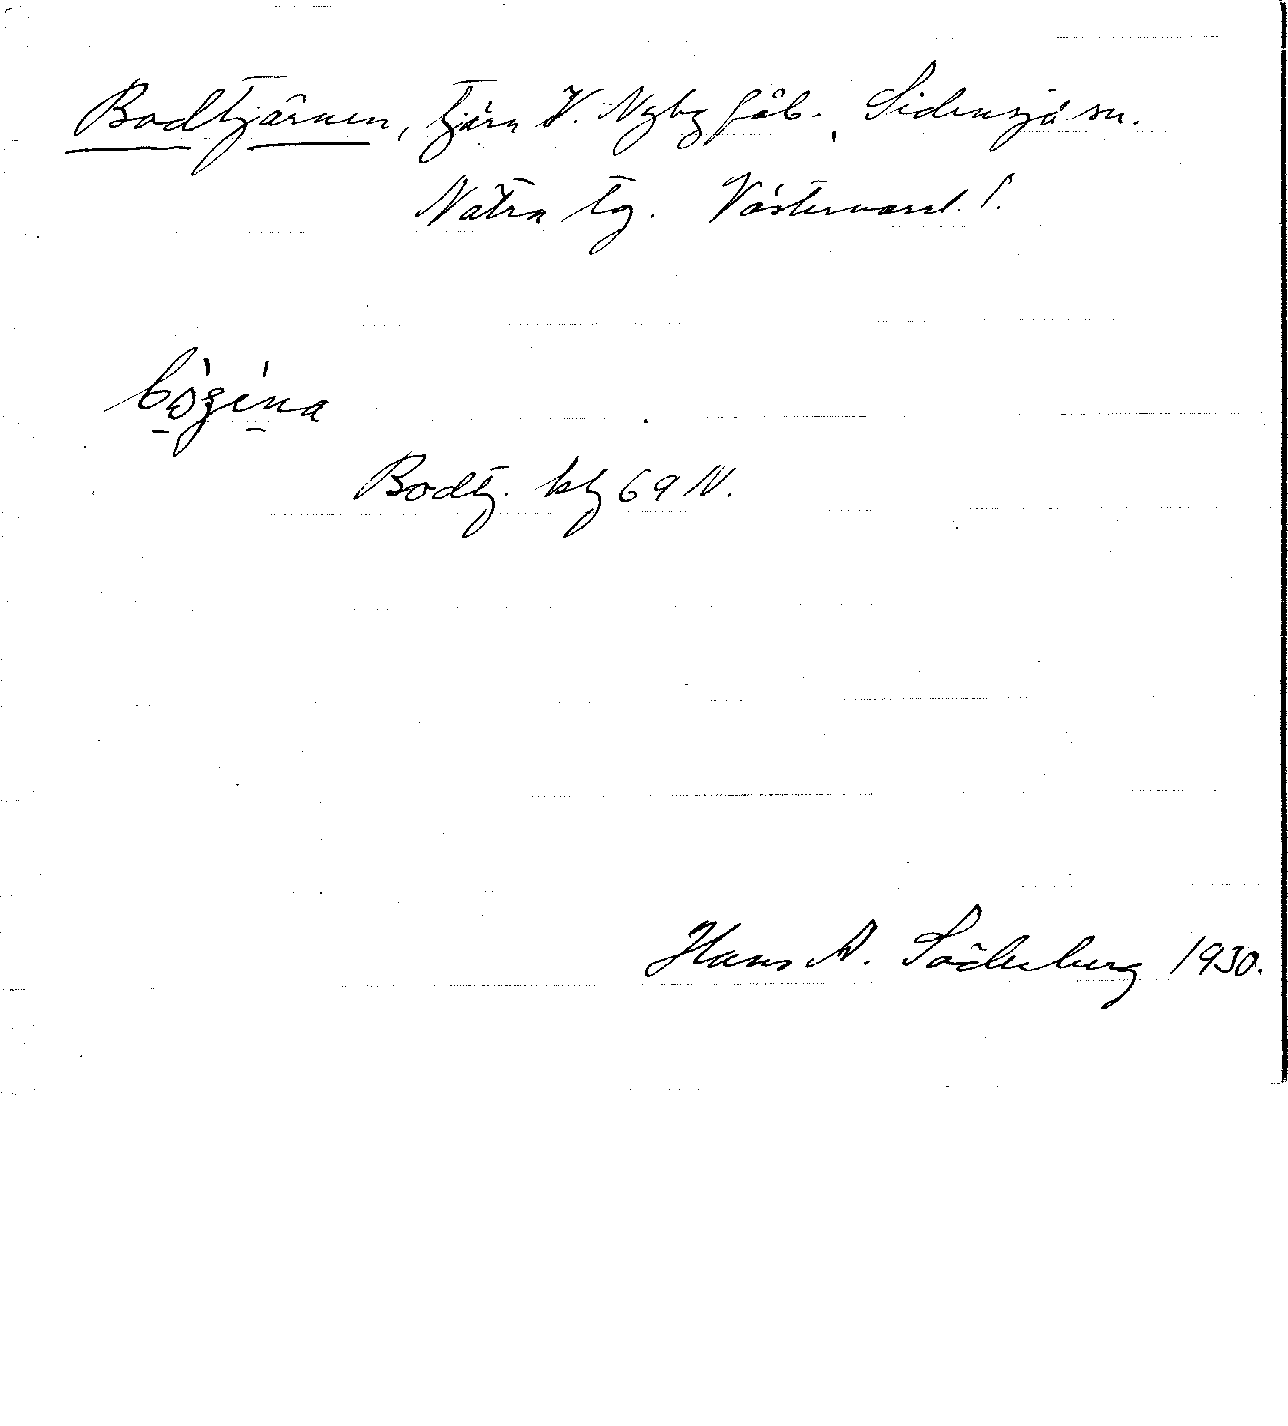 Bodtjärnen, tjärn V. Nyby fäb. Sidensjö sn.
Nätra tg. Västernorrl. l.
Bodtj. kbl 69 N.
Hans A. Söderberg 1930.